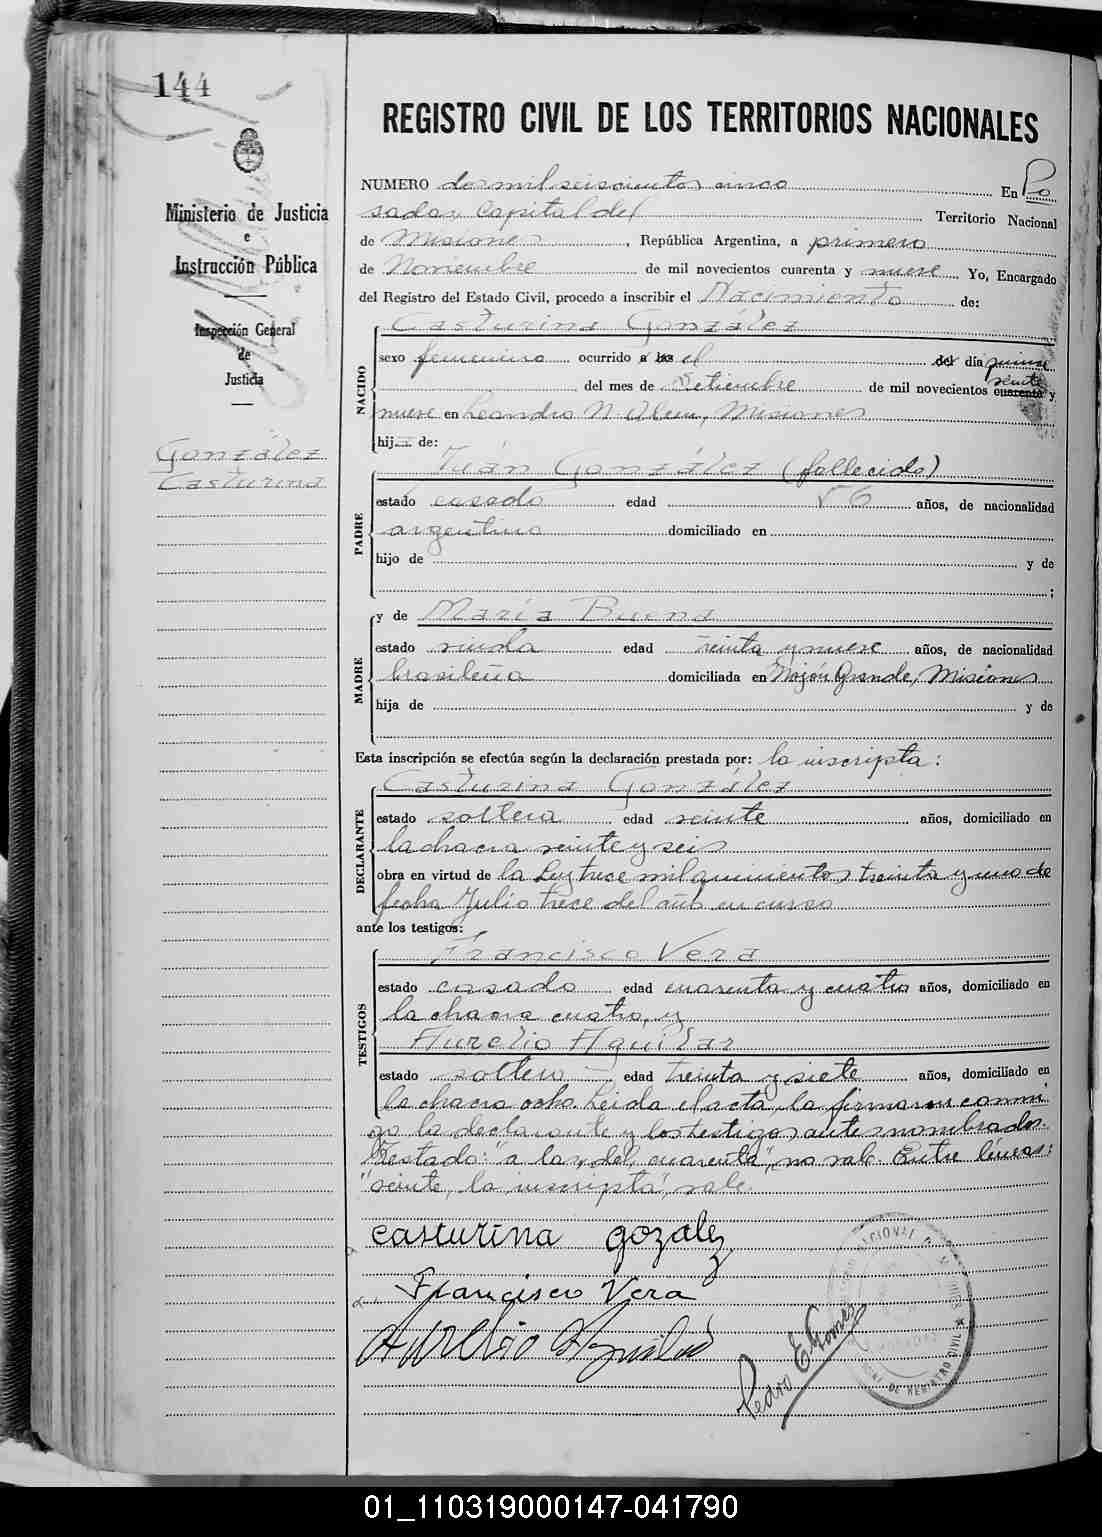 144
REGISTRO CIVIL DE LOS TERRITORIOS NACIONALES
Ministerio de Justicia
e
Instrucción Pública
Inspección General
de
Justicia
González
Casturina
NUMERO dos mil seiscientos cinco En Po
sadas Capital del Territorio Nacional
de Misiones, República Argentina, a primero
de Noviembre de mil novecientos cuarenta y nueve Yo, Encargado
del Registro del Estado Civil, procedo a inscribir el Nacimiento de:
NACIDO
Casturina González
sexo femenino ocurrido a las el del día quince
del mes de Setiembre de mil novecientos cuarenta veinte y
nueve en Leandro N Alem, Misiones
hij de:
PADRE
Juán González (fallecido)
estado casado edad 56 años, de nacionalidad
argentino domiciliado en
hijo de y de
;
MADRE
y de María Buena
estado viuda edad treinta y nueve años, de nacionalidad
brasileña domiciliada en Mojón Grande, Misiones
hija de y de
Esta inscripción se efectúa según la declaración prestada por: la inscripta:
DECLARANTE
Casturina González
estado soltera edad veinte años, domiciliado en
la chacra veinte y seis
obra en virtud de la Ley trece mil quinientos treinta y uno de
fecha Julio trece del año en curso
ante los testigos:
TESTIGOS
Francisco Vera
estado casado edad cuarenta y cuatro años, domiciliado en
la chacra cuatro, y
Aurelio Aguilar
estado soltero edad treinta y siete años, domiciliado en
la chacra ocho. Leida el acta, la firmaron conmi
go la declarante y los testigos antes nombrados.
Testado: "a las, del, cuarenta", no vale. Entre líneas:
"veinte, la inscripta", vale.
casturina gozalez
Francisco Vera
Aurelio Aguilar
Pedro E Gomez
DE REGISTRO CIVIL
01_110319000147-041790